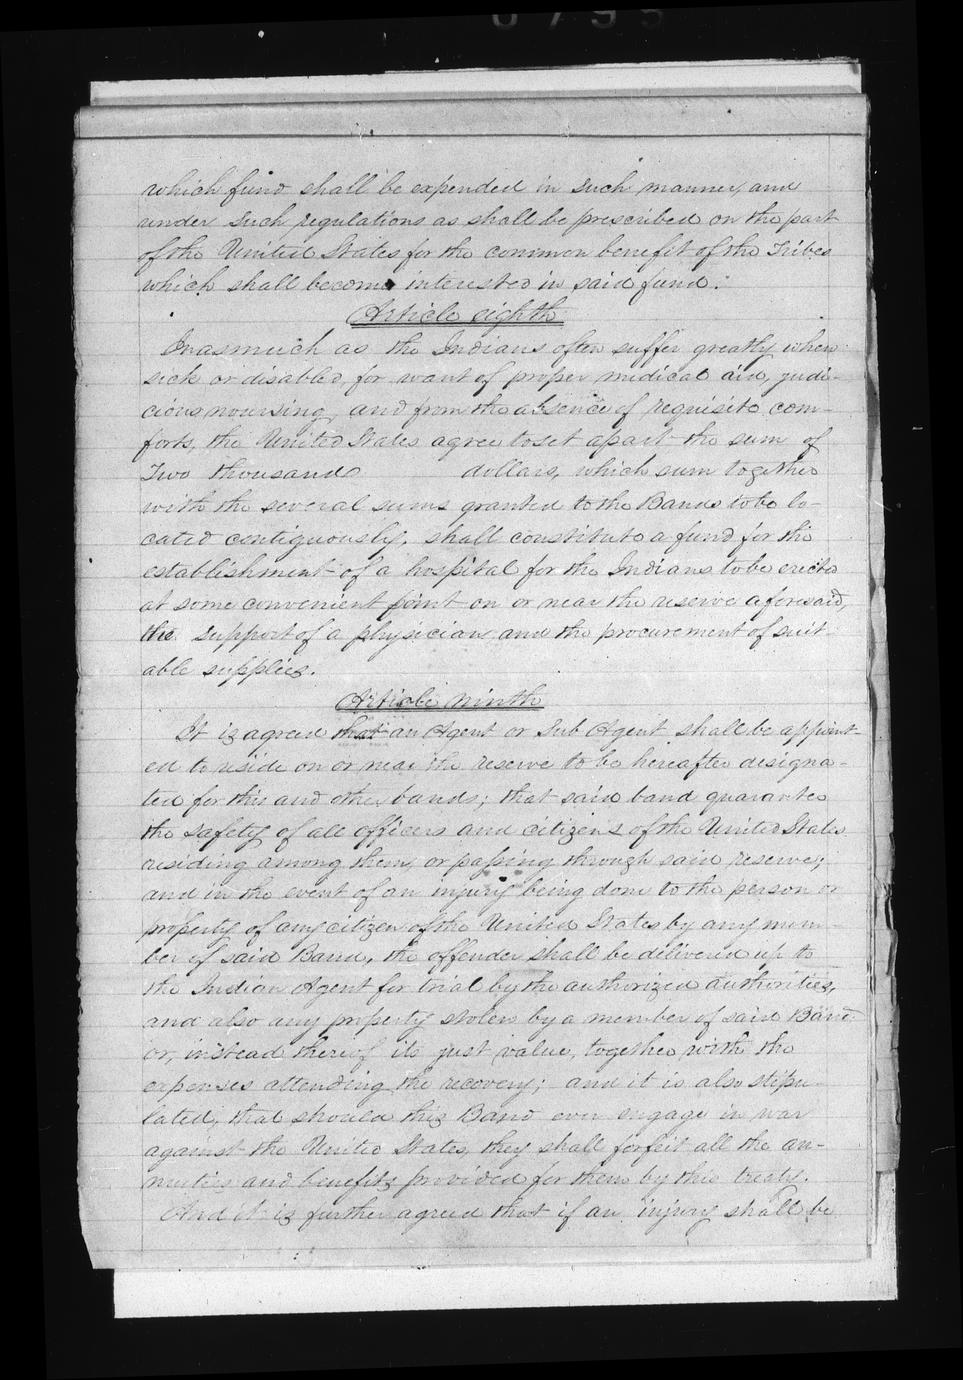 0795
which fund shall be expended in such manner, and
under such regulations as shall be prescribed on the part
of the United States for the common benefit of the Tribes
which shall become interested in said fund.
Article eighth
Inasmuch as the Indians often suffer greatly when
sick or disabled, for want of proper medical aid, judi-
cious nursing, and from the absence of requisite com-
forts, the United States agree to set apart the sum of
Two thousand dollars, which sum together
with the several sums granted to the Bands to be lo-
cated contiguously, shall constitute a fund for the
establishment of a hospital for the Indians to be erected
at some convenient point on or near the reserve aforesaid,
the support of a physician and the procurement of suit-
able supplies.
Article ninth
It is agreed that an Agent or Sub Agent shall be appoint-
ed to reside on or near the reserve to be hereafter designa-
ted for this and other bands; that said band guarantee
the safety of all officers and citizens of the United States
residing among them, or passing through said reserve;
and in the event of an injury being done to the person or
property of any citizen of the United States by any mem-
ber of said Band, the offender shall be delivered up to
the Indian Agent for trial by the authorized authorities,
and also any property stolen by a member of said Band
or, instead thereof its just value, together with the
expenses attending the recovery; and it is also stipu-
lated, that should this Band ever engage in war
against the United States, they shall forfeit all the an-
nuities and benefits provided for them by this treaty.
And it is further agreed that if an injury shall be